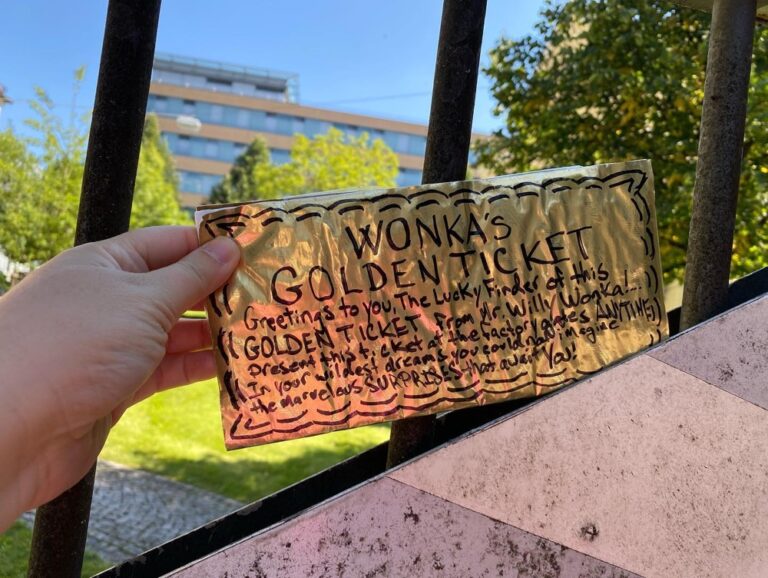 WONKA'S
GOLDEN TICKET
Greetings to you, The Lucky Finder of this
GOLDEN TICKET From Mr. Willy Wonka!...
Present this ticket at the factory gates ANYTIME!
In your wildest dreams you could not imagine
the marvelous SURPRISES that await YOU!